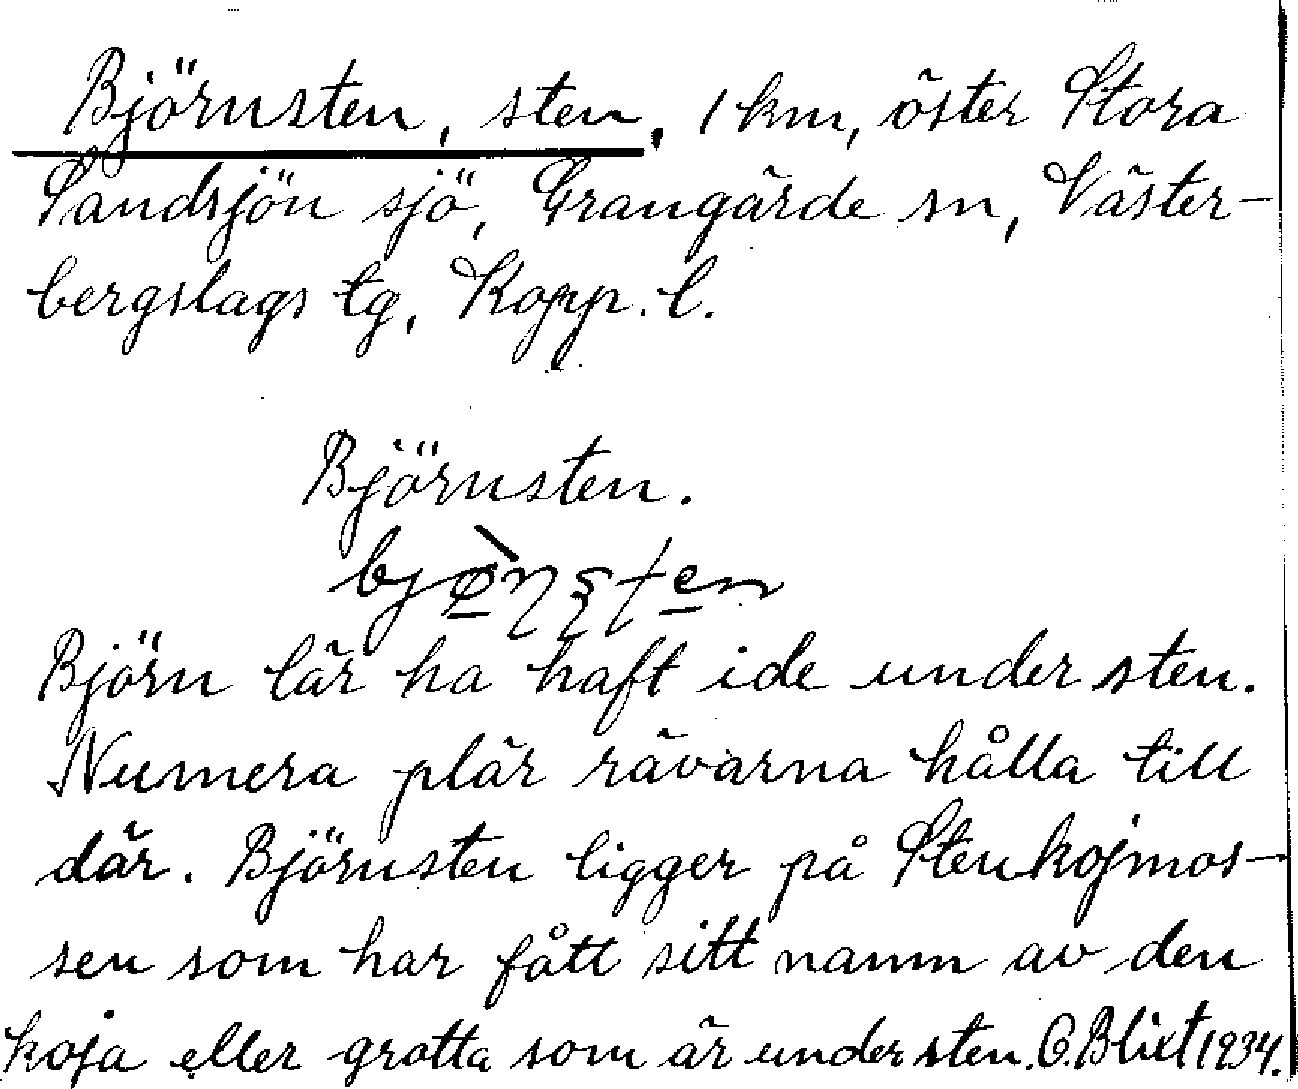 Björnsten, sten, 1 km, öster Stora
Sandsjön sjö, Grangärde sn, Väster-
bergslags tg, Kopp. l.
Björnsten.
Björn lär ha haft ide under sten.
Numera plär rävarna hålla till
där. Björnsten ligger på Stenkojmos-
sen som har fått sitt namn av den
koja eller grotta som är under sten. O. Blixt 1934.